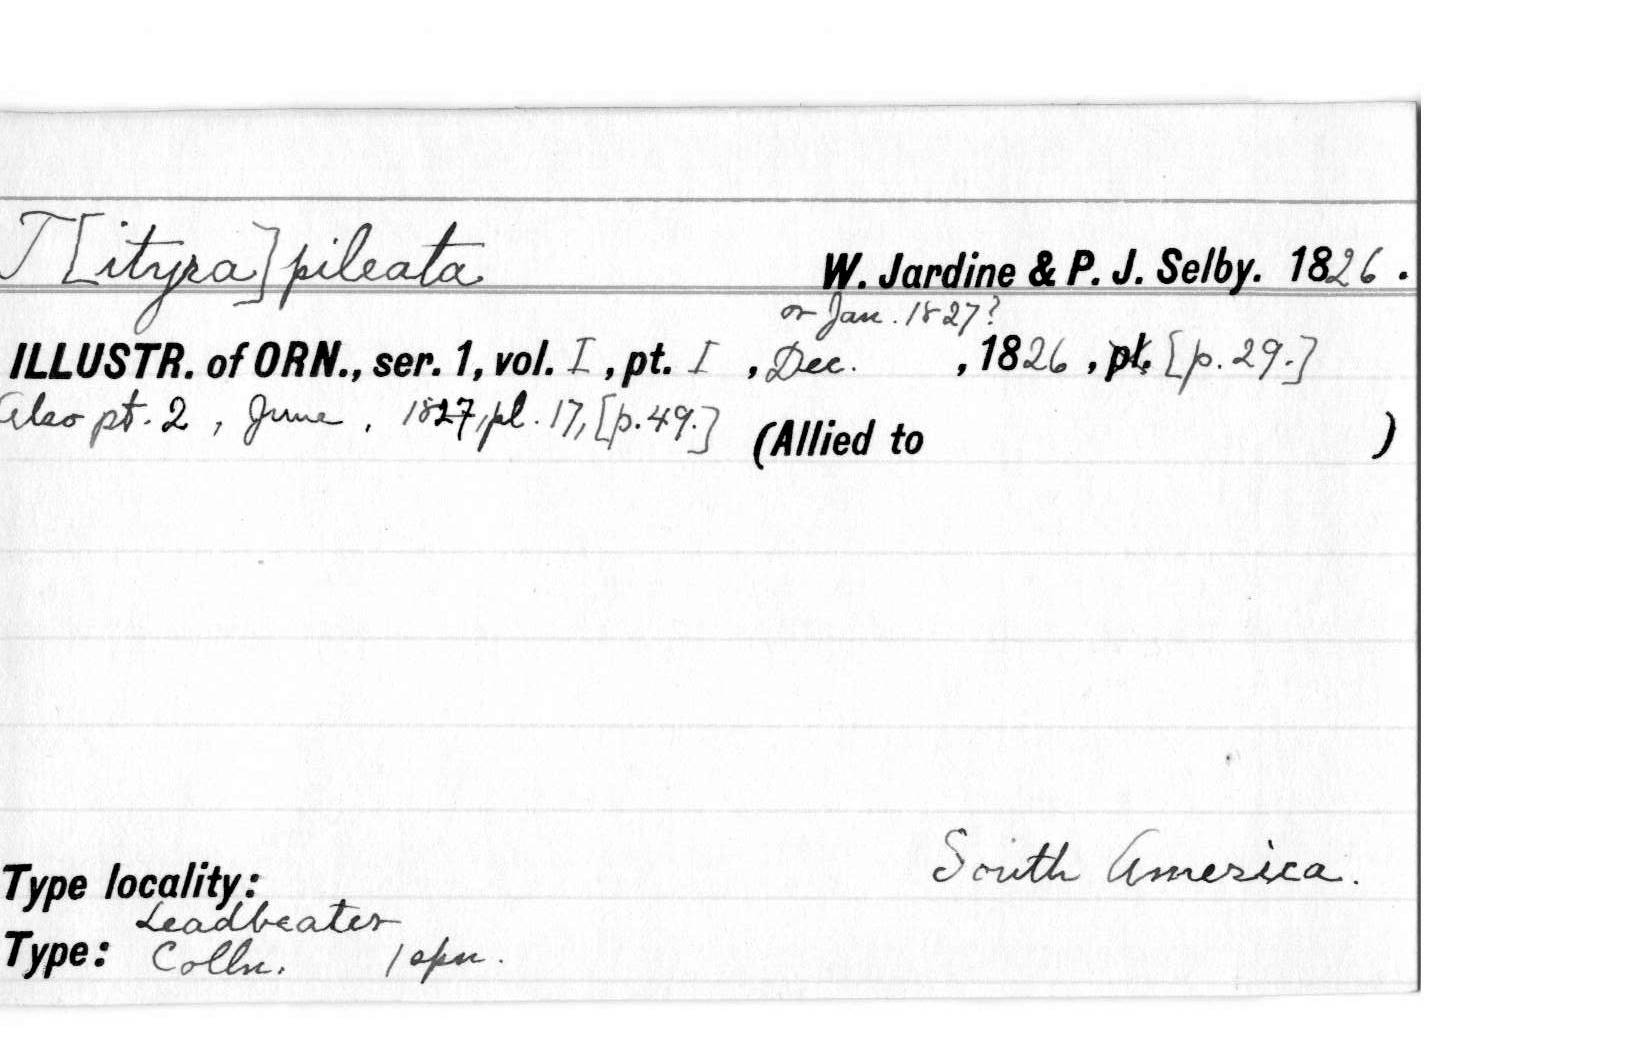 T[ityra] pileata W. Jardine & P. J. Selby. 1826.
or Jan. 1827?
ILLUSTR. of ORN., ser. 1, vol. I, pt. I, Dec. , 1826, pl. [p. 29.]
Also pt. 2, June, 1827, pl. 17, [p. 49.]
(Allied to )
South America.
Type locality:
Leadbeater
Type: Colln. 1 spn.